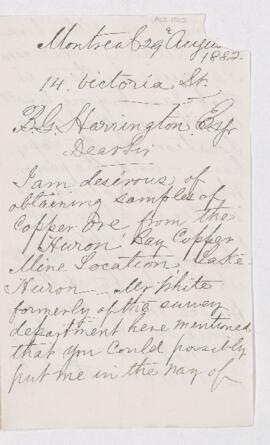 Montreal 29 August
1882
14. Victoria St.
B.G. Harrington Esqr
Dear Sir
I am desirous of
obtaining samples of
Copper Ore from the
Huron Bay Copper
Mine Location, Lake
Huron — Mr White
formerly of the survey
department here mentioned
that you could possibly
put me in the way of